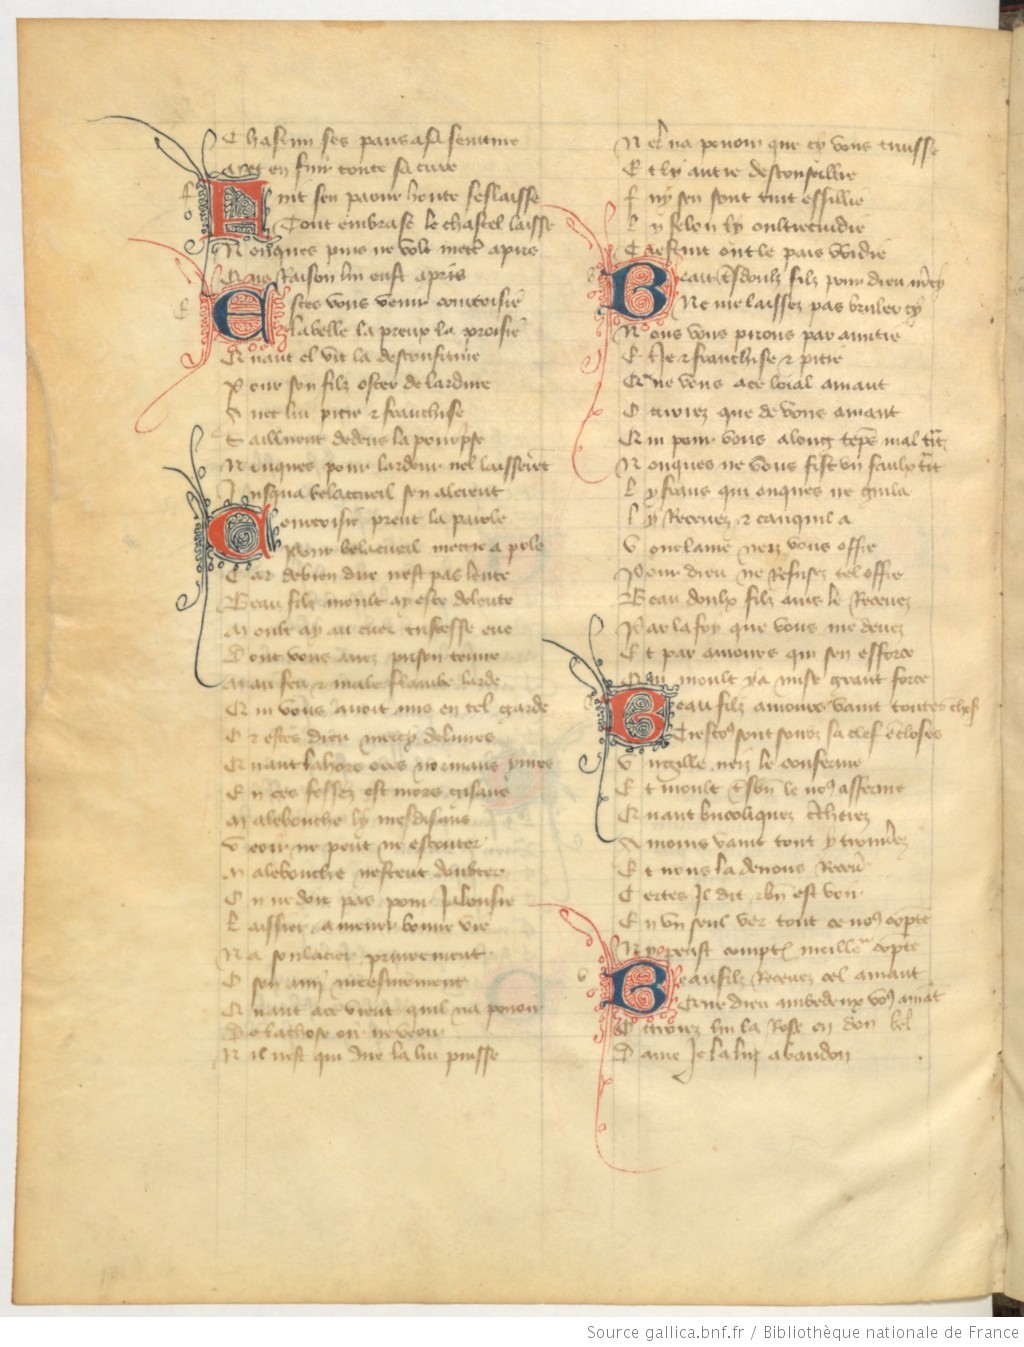 Chascun ses paus a sa senture
A et en fuir toute sa cure
Fuit sen paour honte seslaisse
Tout embrase le chastel laisse
Nonques puis ne volt metre apris
Que Raison lui eust apris
Estes vous venir courtoisie
La belle la preux la proisie
Quant el vit la desconfiture
Pour son filz oster de lardure
Avec lui pitie et franchise
Saillirent dedens la pourprise
Nonques pour lardeur nel laisserent
Jusqua belacueil sen alerent
Courtoisie prent la parole
Pour belacueil
Car de bien dire nest pas lente
Beau filz moult ay este dolente
Moult ay au cuer tristesse eue
Dont vous avez prison tenue
Mau feu et male flambe larde
Qui vous avoit mis en tel garde
Or estes dieu mercy delivres
Quant la hors o ses normans yvres
En ces fossez est mors gisans
Malebouche ly mesdisans
Veoir ne peut ne escouter
Malebouche nestuet doubter
On ne doit pas pour Jalousie
Laissier a mener bonne vie
Na soulacier priveement
O son amy meesmement
Quant a ce vient quil na pooir
De la chose oir ne veoir
Nil nest qui dire la lui puisse
Nel na pooir que cy vous truisse
Et ly autre desconseillie
Fuy sen sont tuit essillie
Ly felon ly oultrecuidie
Trestuit ont le pais vuidie
Beau tresdoulx filz pour dieu mercy
Ne me laissez pas bruler cy
Nous vous prions par amitie
Et Je et franchise et pitie
Que vous a ce loial amant
Ottroiez que de vous amant
Qui pour vous a long temps mal trait
Nonques ne vous fist un faulx trait
Ly frans qui onques ne guila
Recevez et tanquil a
Voire lame nez vous offre
Pour dieu ne Refusez tel offre
Beau doulx filz ains le Recevez
Par la foy que vous me devez
Et par amours qui sen efforce
Qui moult y a mise grant force
Beau filz amours vaint toutes choses
Trestous sont soubz sa clef encloses
Virgille neiz le conferme
Et moult le nous afferme
Quant bucoliques cercherez
Amours vaint tout y trouverez
Et nous la devons Recevoir
Certes Il dit bien est voir
En un seul ver tout ce nous compte
Ny peust compter meilleur compte
Beau filz Recevez cel amant
Que dieu ambedeux vous amant
Ottroiez lui la Rose en don bel
Dame Je la luy abandon